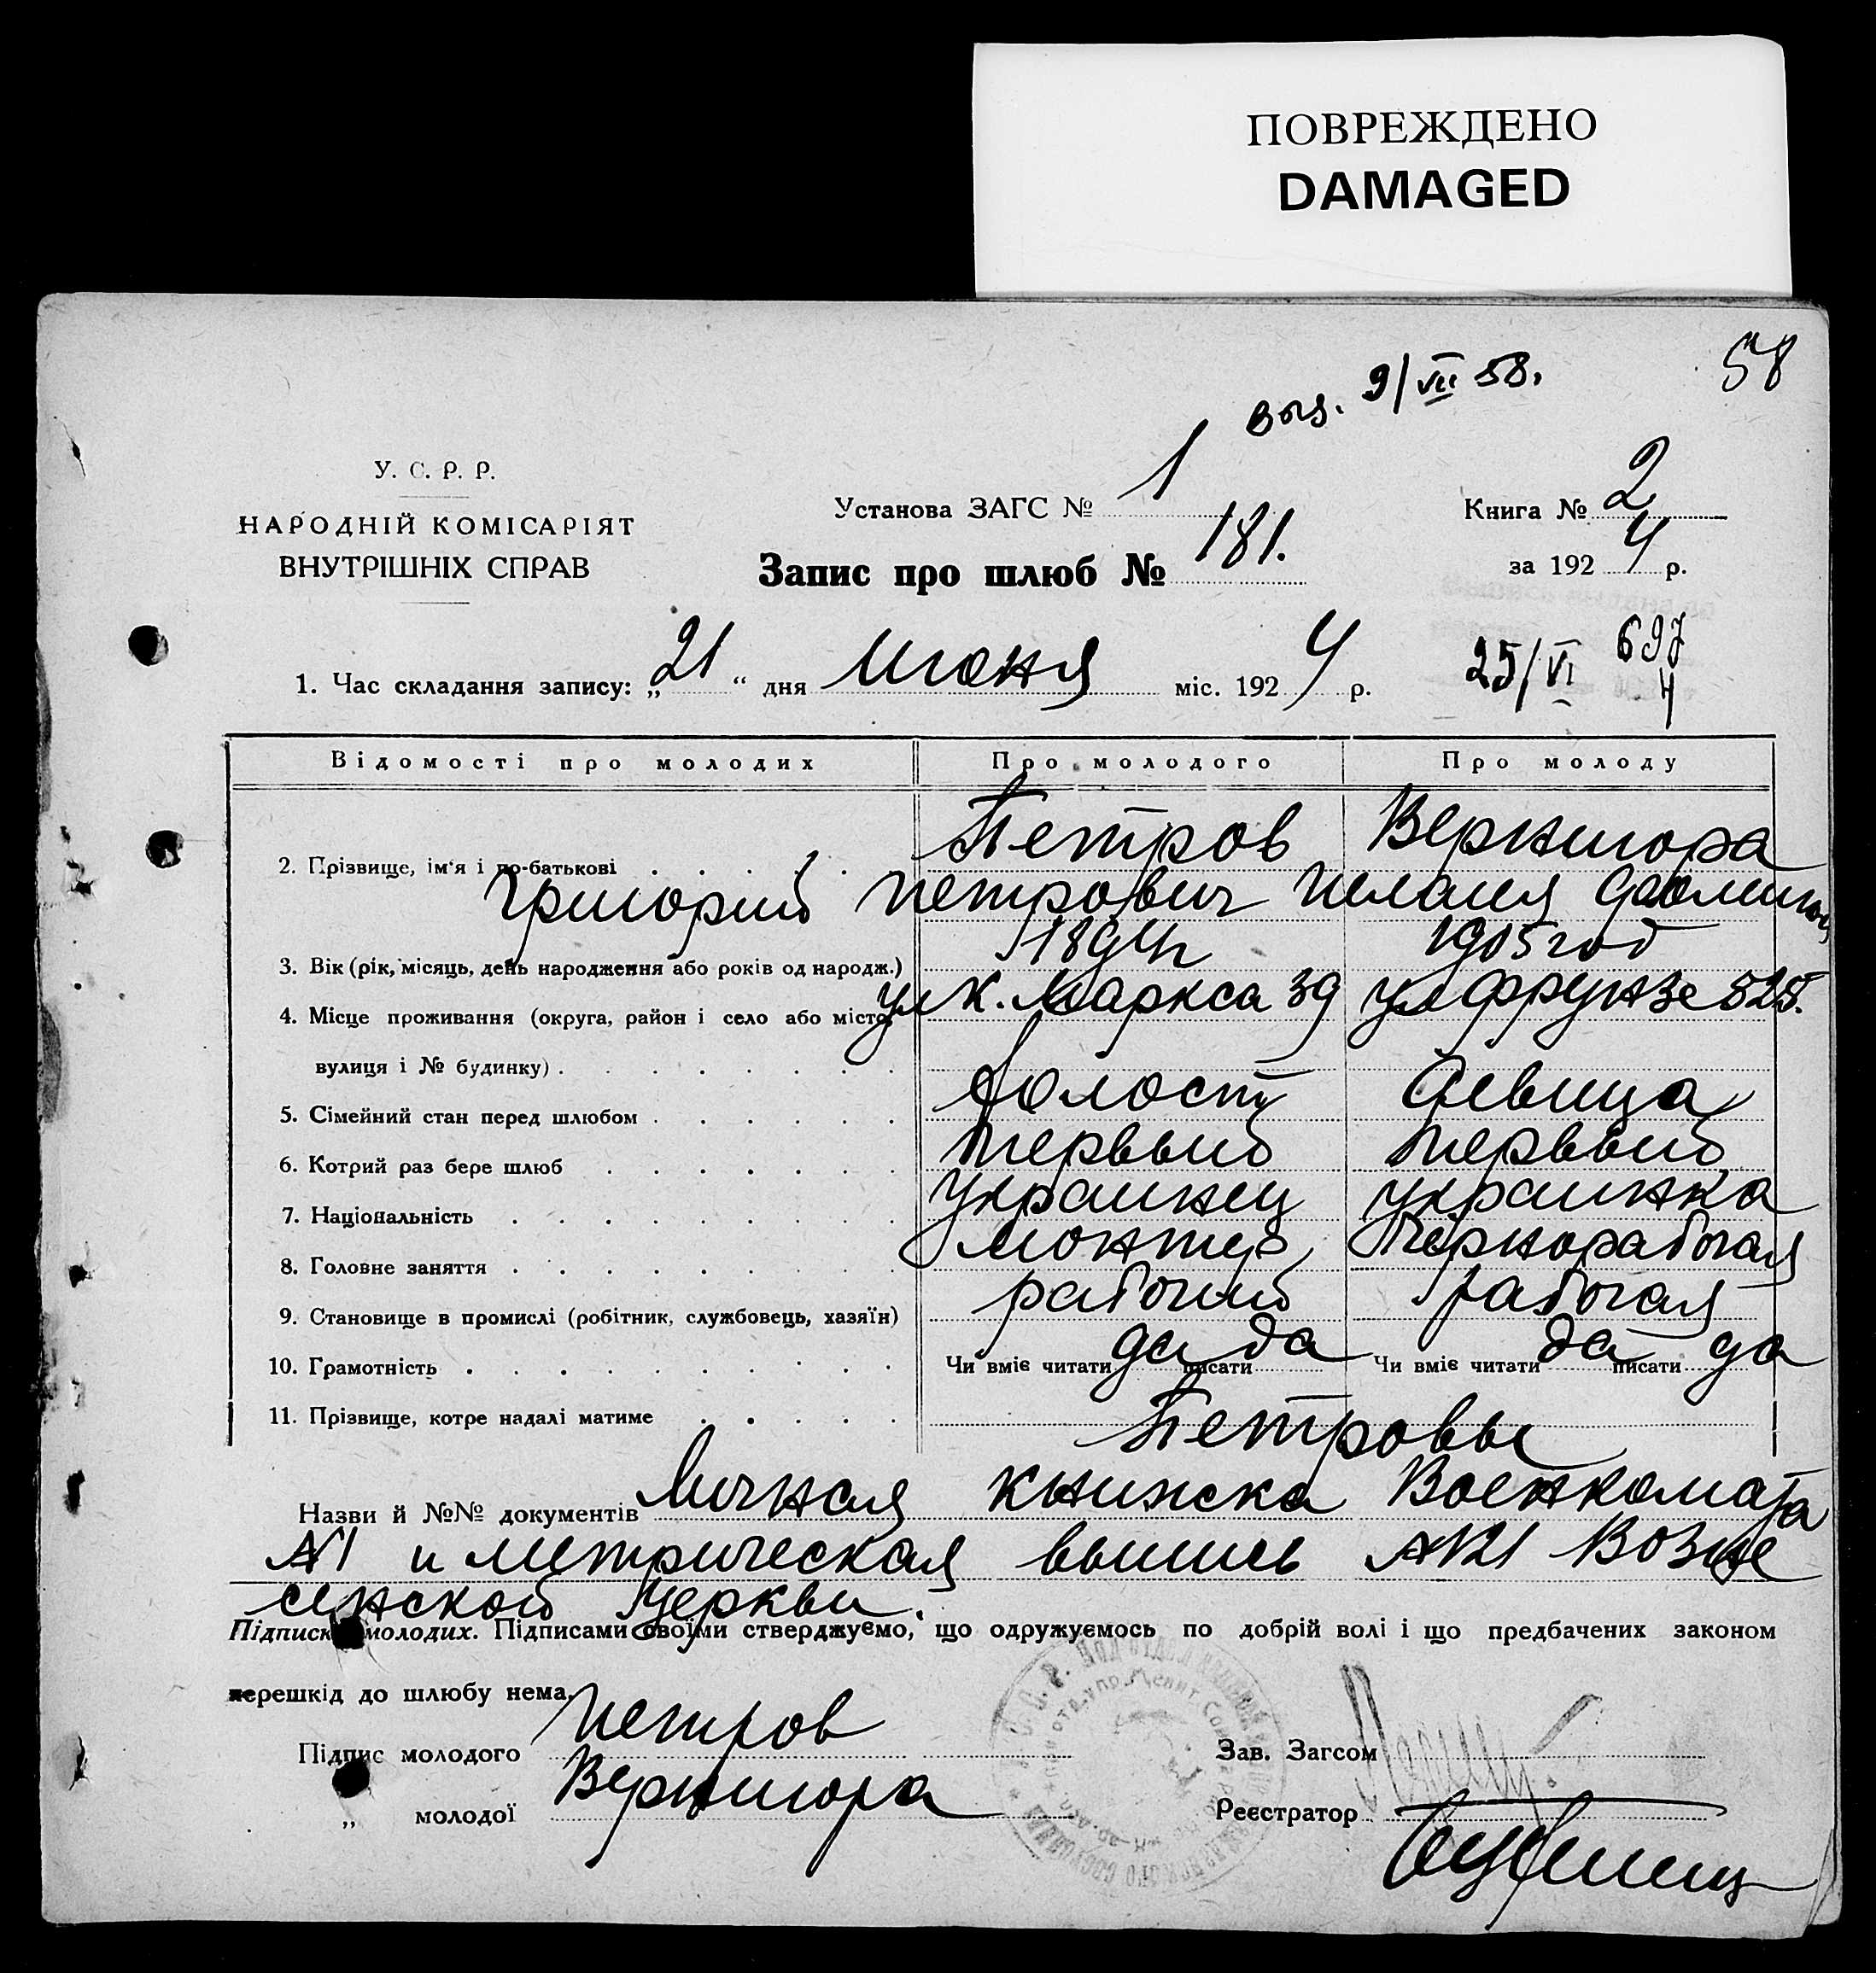 ПОВРЕЖДЕНО
DAMAGED
58
выд. 9/VII 58.
У. С. Р. Р.
НАРОДНІЙ КОМІСАРІЯТ
ВНУТРІШНІХ СПРАВ
Установа ЗАГС № 1
Книга № 2
Запис про шлюб № 181.
за 1924 р.
1. Час складання запису: „21“ дня Июня міс. 1924 р.
25/VI
697
4
Відомості про молодих Про молодого Про молоду
2. Прізвище, ім'я і по-батькові Петров Вернигора
Григорий Петрович Пелагея
3. Вік (рік, місяць, день народження або років од народж.) 1894г 1905 год
4. Місце проживання (округа, район і село або місто, ул К. Маркса 39 ул Фрунзе 525.
вулиця і № будинку)
5. Сімейний стан перед шлюбом Холост Девица
6. Котрий раз бере шлюб Первый Первый
7. Національність Украинец Украинка
8. Головне заняття Монтер Чернорабочая
9. Становище в промислі (робітник, службовець, хазяїн) рабочий рабочая
10. Грамотність Чи вміє читати да писати да Чи вміє читати да писати да
11. Прізвище, котре надалі матиме Петровы
Назви й №№ документів Личная книжка Военкомата
№1 и метрическая выпись №21 Возне
сенской церкви.
Підписи молодих. Підписами своїми стверджуємо, що одружуємось по добрій волі і що предбачених законом
перешкід до шлюбу нема.
Підпис молодого Петров
Зав. Загсом
„ молодої Вернигора
Реєстратор